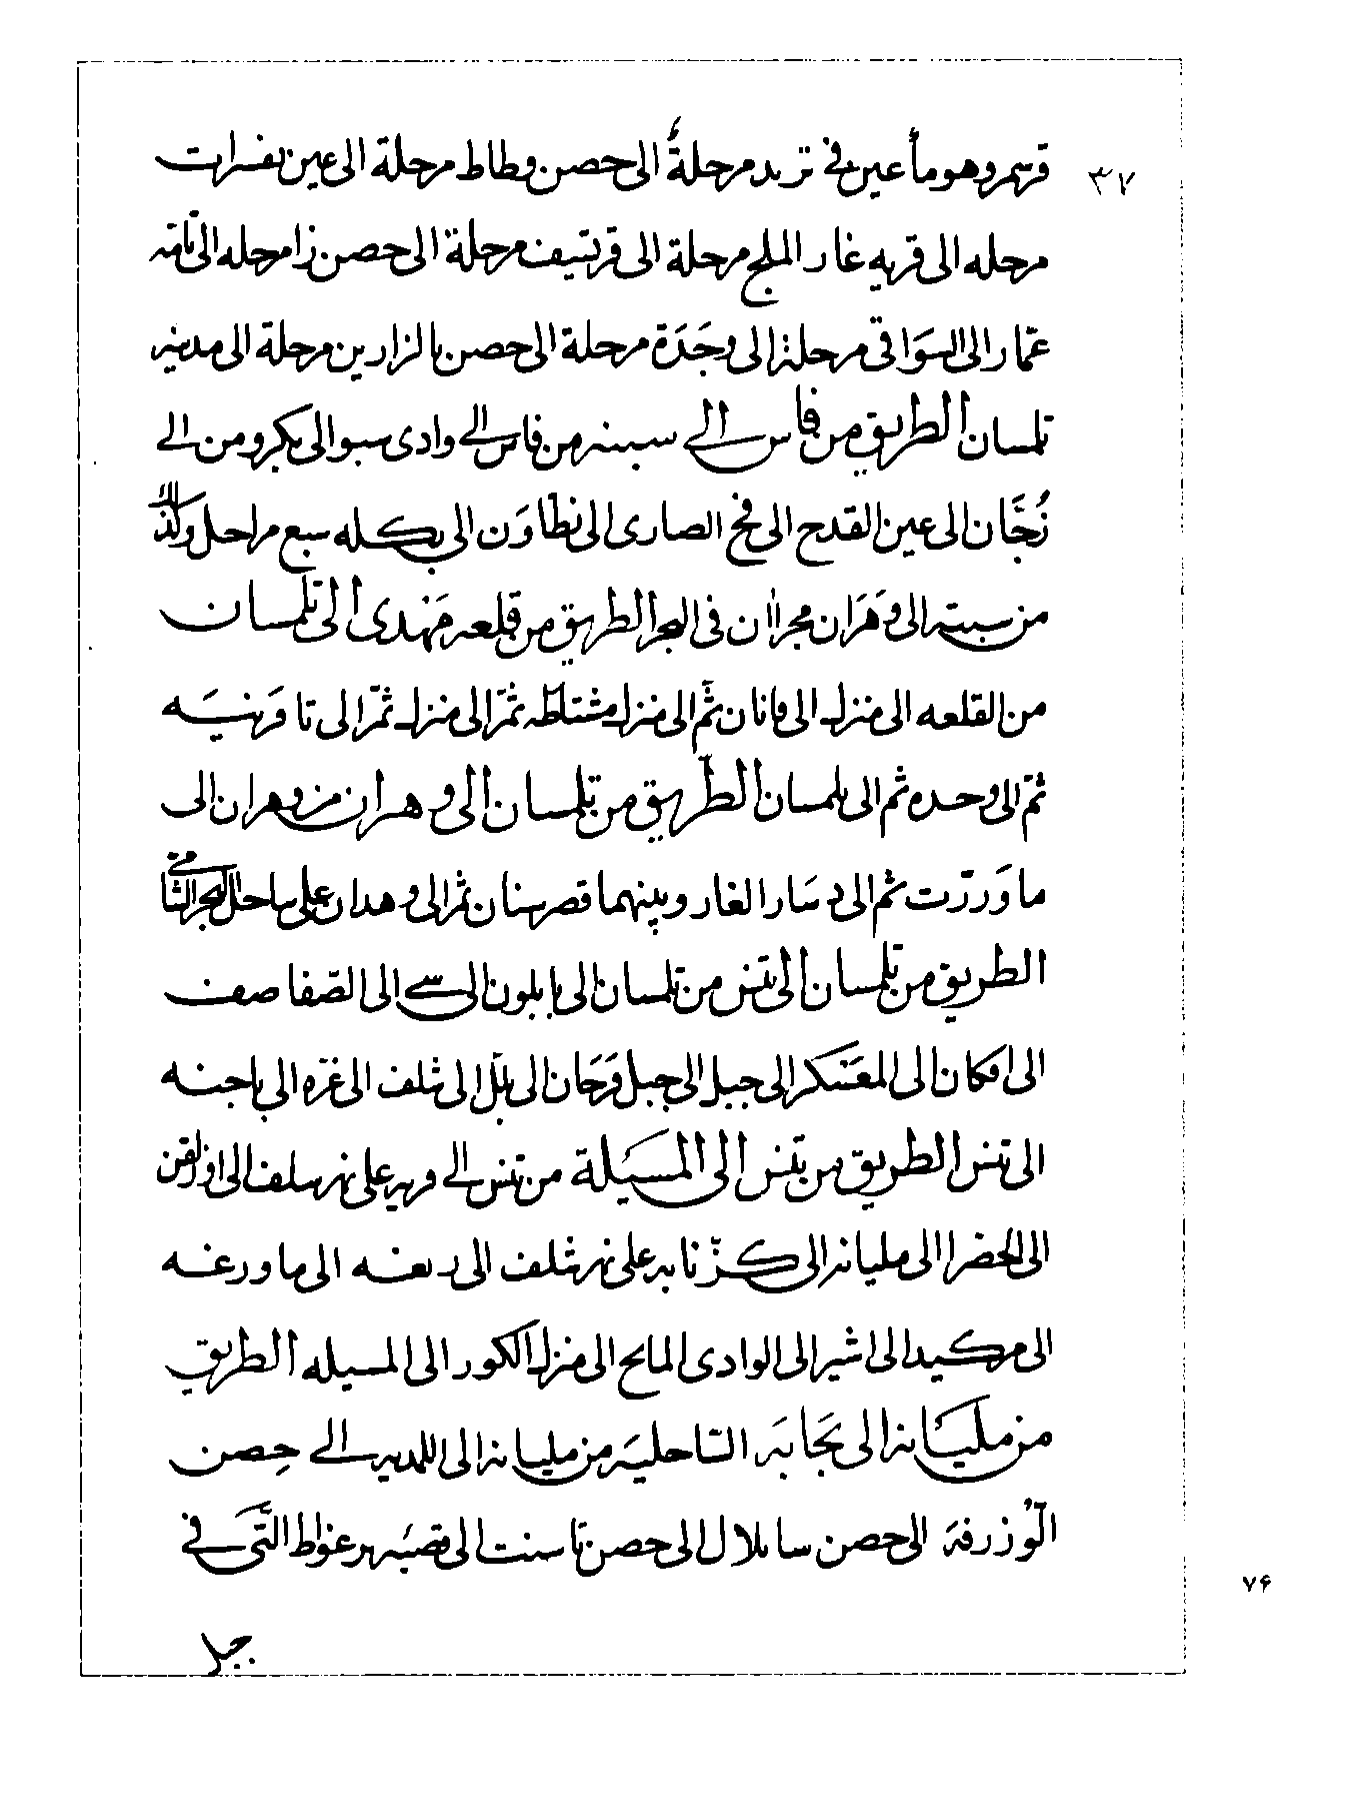 ٣٧
قرسم وهو مأ عين في تريد مرحلةً الى حصن وطاط مرحلة الى عين
مرحله الى قريه غار الملح مرحلة الى قرتيف مرحلة الى حصن زا مرحله الى
عمّار الى السَوَاقى مرحلة الى وجَدَة مرحلة الى حصن بالزارين مرحلة الى مدينه
تلمسان الطريق من فاس الى سبته من فاس الى وادى سبو الى بكرو من الى
نُجَّان الى عين القدح الى فج الصارى الى تطّاوَن الى بكله سبع مراحل وكذلك
من سبته الى وَهَرَان مجراان فى البحر الطريق من قلعه مَهْدى الى تلمسان
من القلعه الى منزل الى فانان ثمّ الى منزل مشتاطه ثمّ الى منزل ثمّ الى تا فَرنيَسَه
ثمّ الى وجده ثم الى تلمسان الطّريق من تلمسان الى وهران من وهران الى
ما وَرزت ثم الى د سَار الغار وبينهما قصر سنان ثم الى وهدان على ساحل البحر الشامى
الطريق من تلمسان الى تنس من تلمسان الى بابلون الى سى الى الصّفاصف
الى افكان الى المعَسْكر الى جبل الى جبل فَرَحَان الى بلّل الى شلف الى غزه الى باجنه
الى تنس الطريق من تنس الى المَسَيلة من تنس الى قريه على نهر سلف الى
الى الخضرا الى مليانه الى كزّنايه على نهر شلف الى ريغه الى ماورغه
الى مركيدا الى اشير الى الوادى المالح الى منزل الكور الى المسيله الطريق
من مليَانه الى بجَايَه السّاحليَه من مليانه الى المديه الى حِصن
الوُزرفَه الى حصن سا بلال الى حصن تاسنت الى غواط التَّى فى
جبل
٧۶